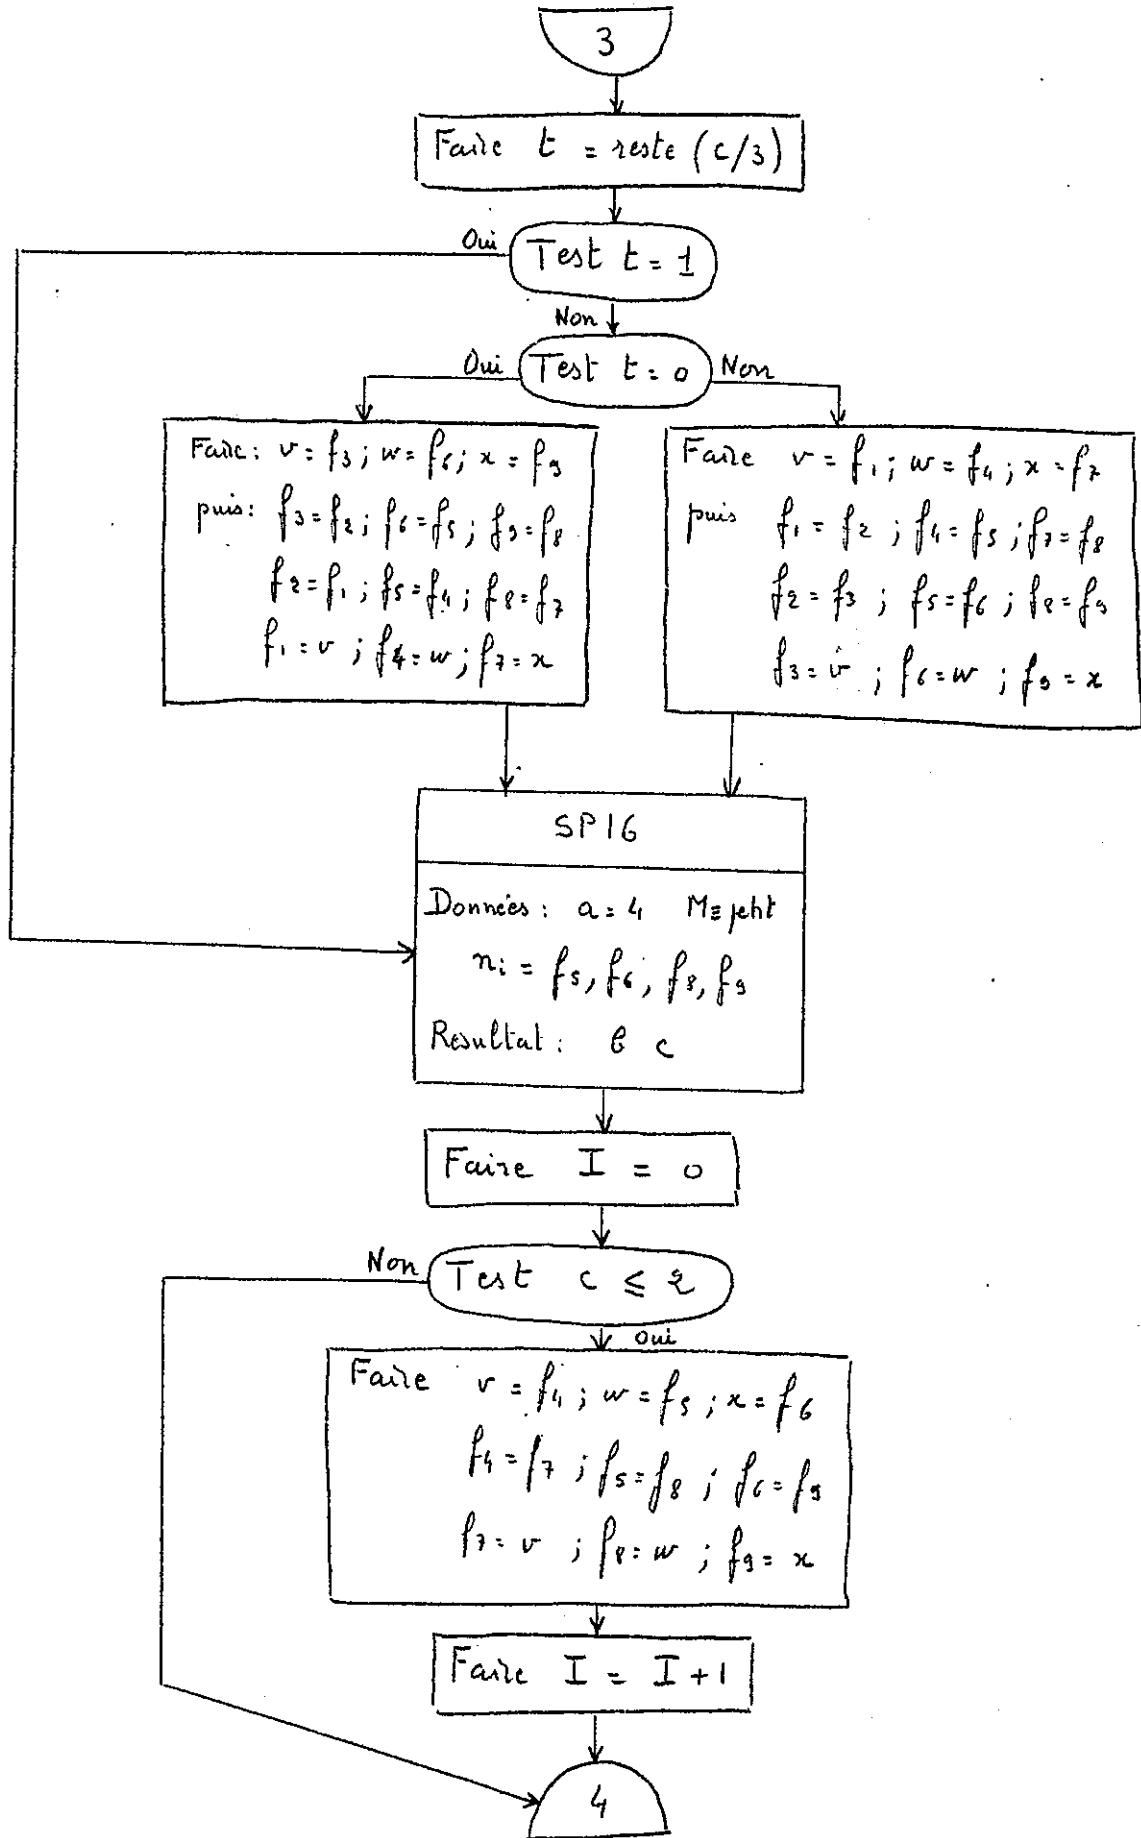 3
Faire t = reste (c/3)
Oui
Test t = 1
Non
Oui
Test t = 0
Non
Faire: v = f3 ; w = f6 ; x = f9
puis: f3 = f2 ; f6 = f5 ; f9 = f8
f2 = f1 ; f5 = f4 ; f8 = f7
f1 = v ; f4 = w ; f7 = x
Faire v = f1 ; w = f4 ; x = f7
puis f1 = f2 ; f4 = f5 ; f7 = f8
f2 = f3 ; f5 = f6 ; f8 = f9
f3 = v ; f6 = w ; f9 = x
SP16
Données: a = 4 M ≡ jeht
ni = f5, f6, f8, f9
Resultat: b c
Faire I = 0
Non
Test c ≤ 2
oui
Faire v = f4 ; w = f5 ; x = f6
f4 = f7 ; f5 = f8 ; f6 = f9
f7 = v ; f8 = w ; f9 = x
Faire I = I + 1
4